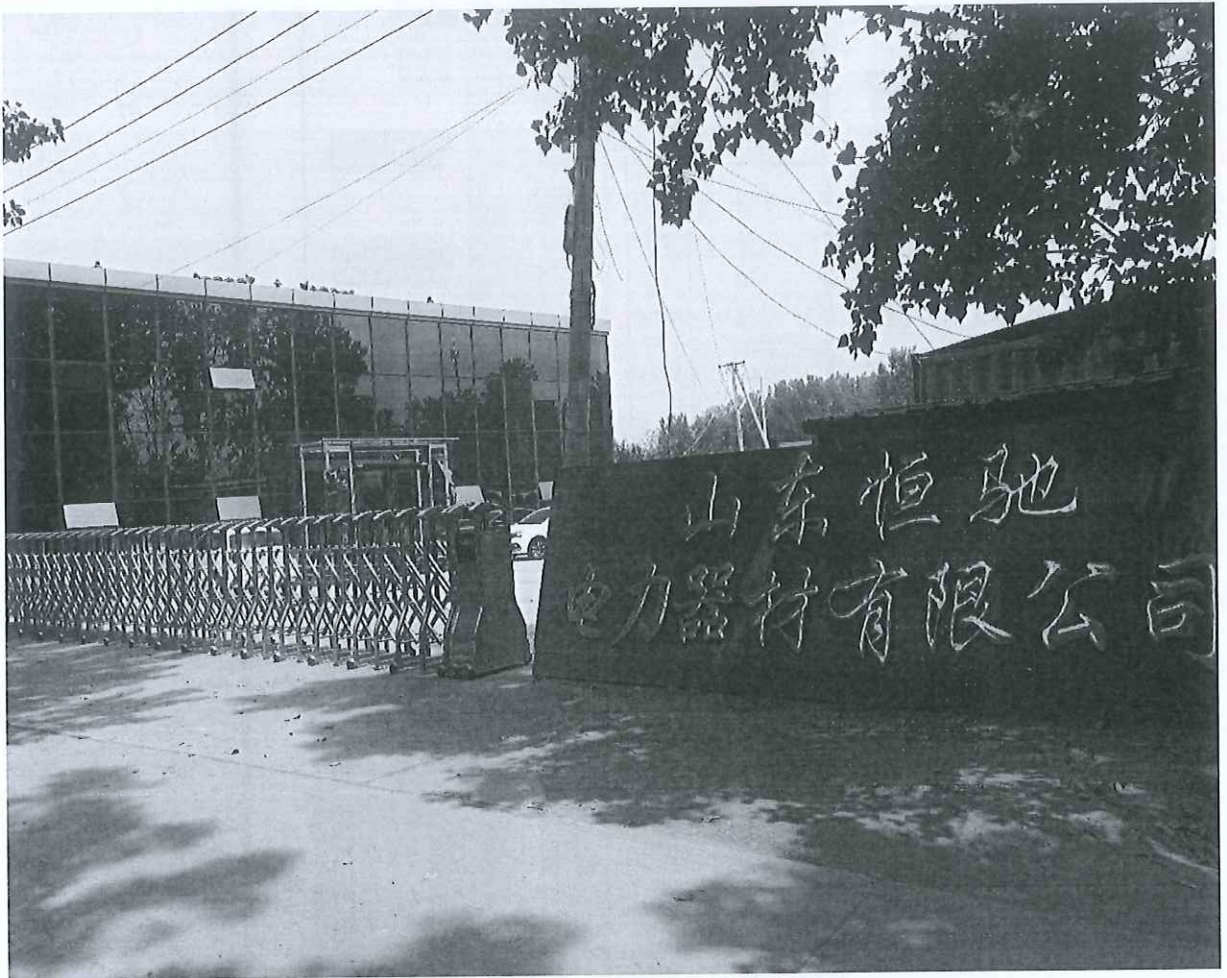 山东恒驰
电力器材有限公司